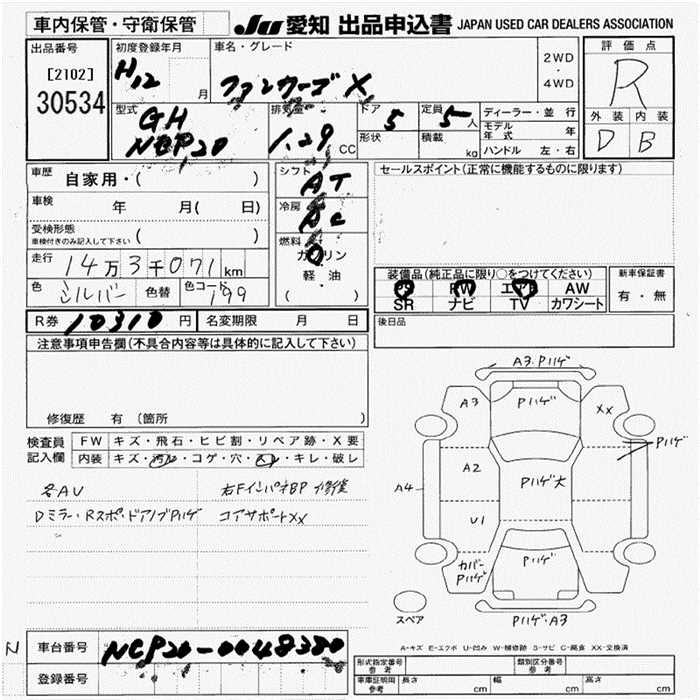 車内保管・守衛保管
JU 愛知 出品申込書 JAPAN USED CAR DEALERS ASSOCIATION
出品番号
[2102]
30534
初度登録年月
H12 月
車名・グレード
ファンカーゴ X
2WD
・
4WD
評価点
R
外装 内装
D B
型式
GH
NCP20
排気量
1.29 CC
ドア 5
形状
定員 5 人
積載 kg
ディーラー・並行
モデル年式 年
ハンドル 左・右
車歴 自家用・( )
車検 年 月( 日)
受検形態
車検付きのみ記入して下さい ( )
走行 14万3千071km
色 シルバー 色替 色コード 199
シフト AT
冷房 AC
燃料
ガソリン
軽・油
( )
セールスポイント(正常に機能するものに限ります)
装備品(純正品に限り○をつけてください)
PS PW エアB AW
SR ナビ TV カワシート
新車保証書
有・無
R券 10310円 名変期限 月 日
後日品
注意事項申告欄(不具合内容等は具体的に記入して下さい)
修復歴 有 〔箇所 〕
検査員記入欄
FW キズ・飛石・ヒビ割・リペア跡・X要
内装 キズ・汚レ・コゲ・穴・スレ・キレ・破レ
各AU 右FインパネBP修復
Dミラー・Rスポ・ドアノブPハゲ コアサポートXX
A3・Pハゲ
A3 Pハゲ XX
Pハゲ
A2 Pハゲ大
A4
U1
カバーPハゲ Pハゲ
スペア
Pハゲ・A3
A-キズ E-エクボ U-凹み W-補修跡 S-サビ C-腐食 XX-交換済
N
車台番号 NCP20-0048380
登録番号
形式指定番号 参考
類別区分番号 参考
車庫証明用 参考 長さ cm 幅 cm 高さ cm